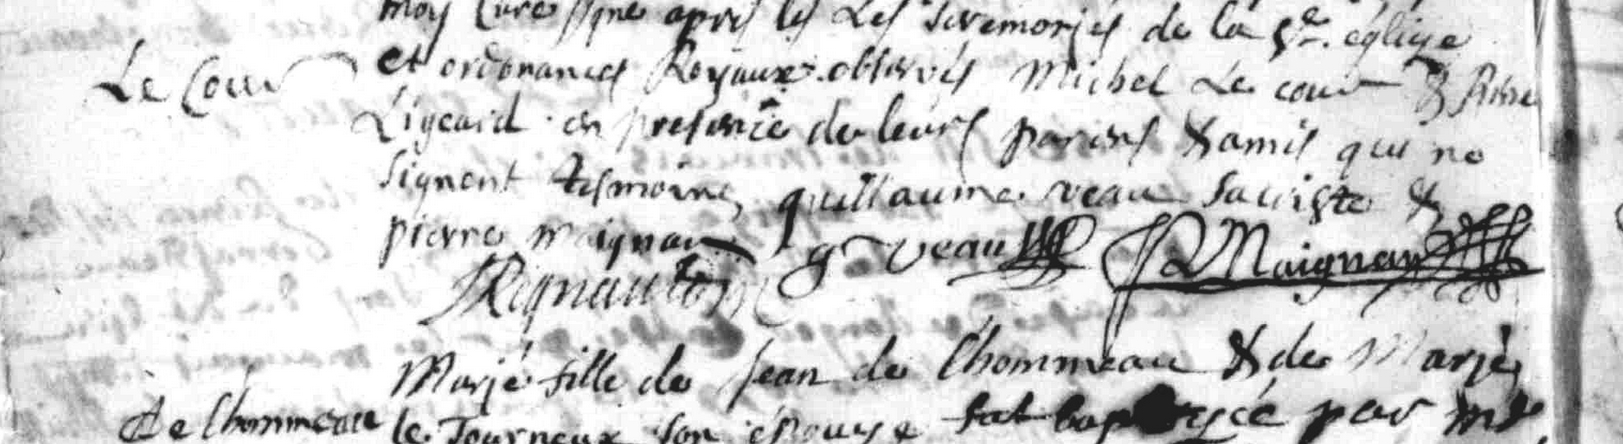 moy curé ssné apres les les seremonjes de la Ste église
Le Cour et ordonances Royaux observés Michel Le cour & Pierre
Ligeard en presence de leurs parens & amis qui ne
signent tesmoins guillaume veau sacriste &
pierre maignan g veau P Maignan
Regnault
Marje fille de Jean de lhommeau & de Marje
de lhommeau le Tourneux son épouse fut baptisée par